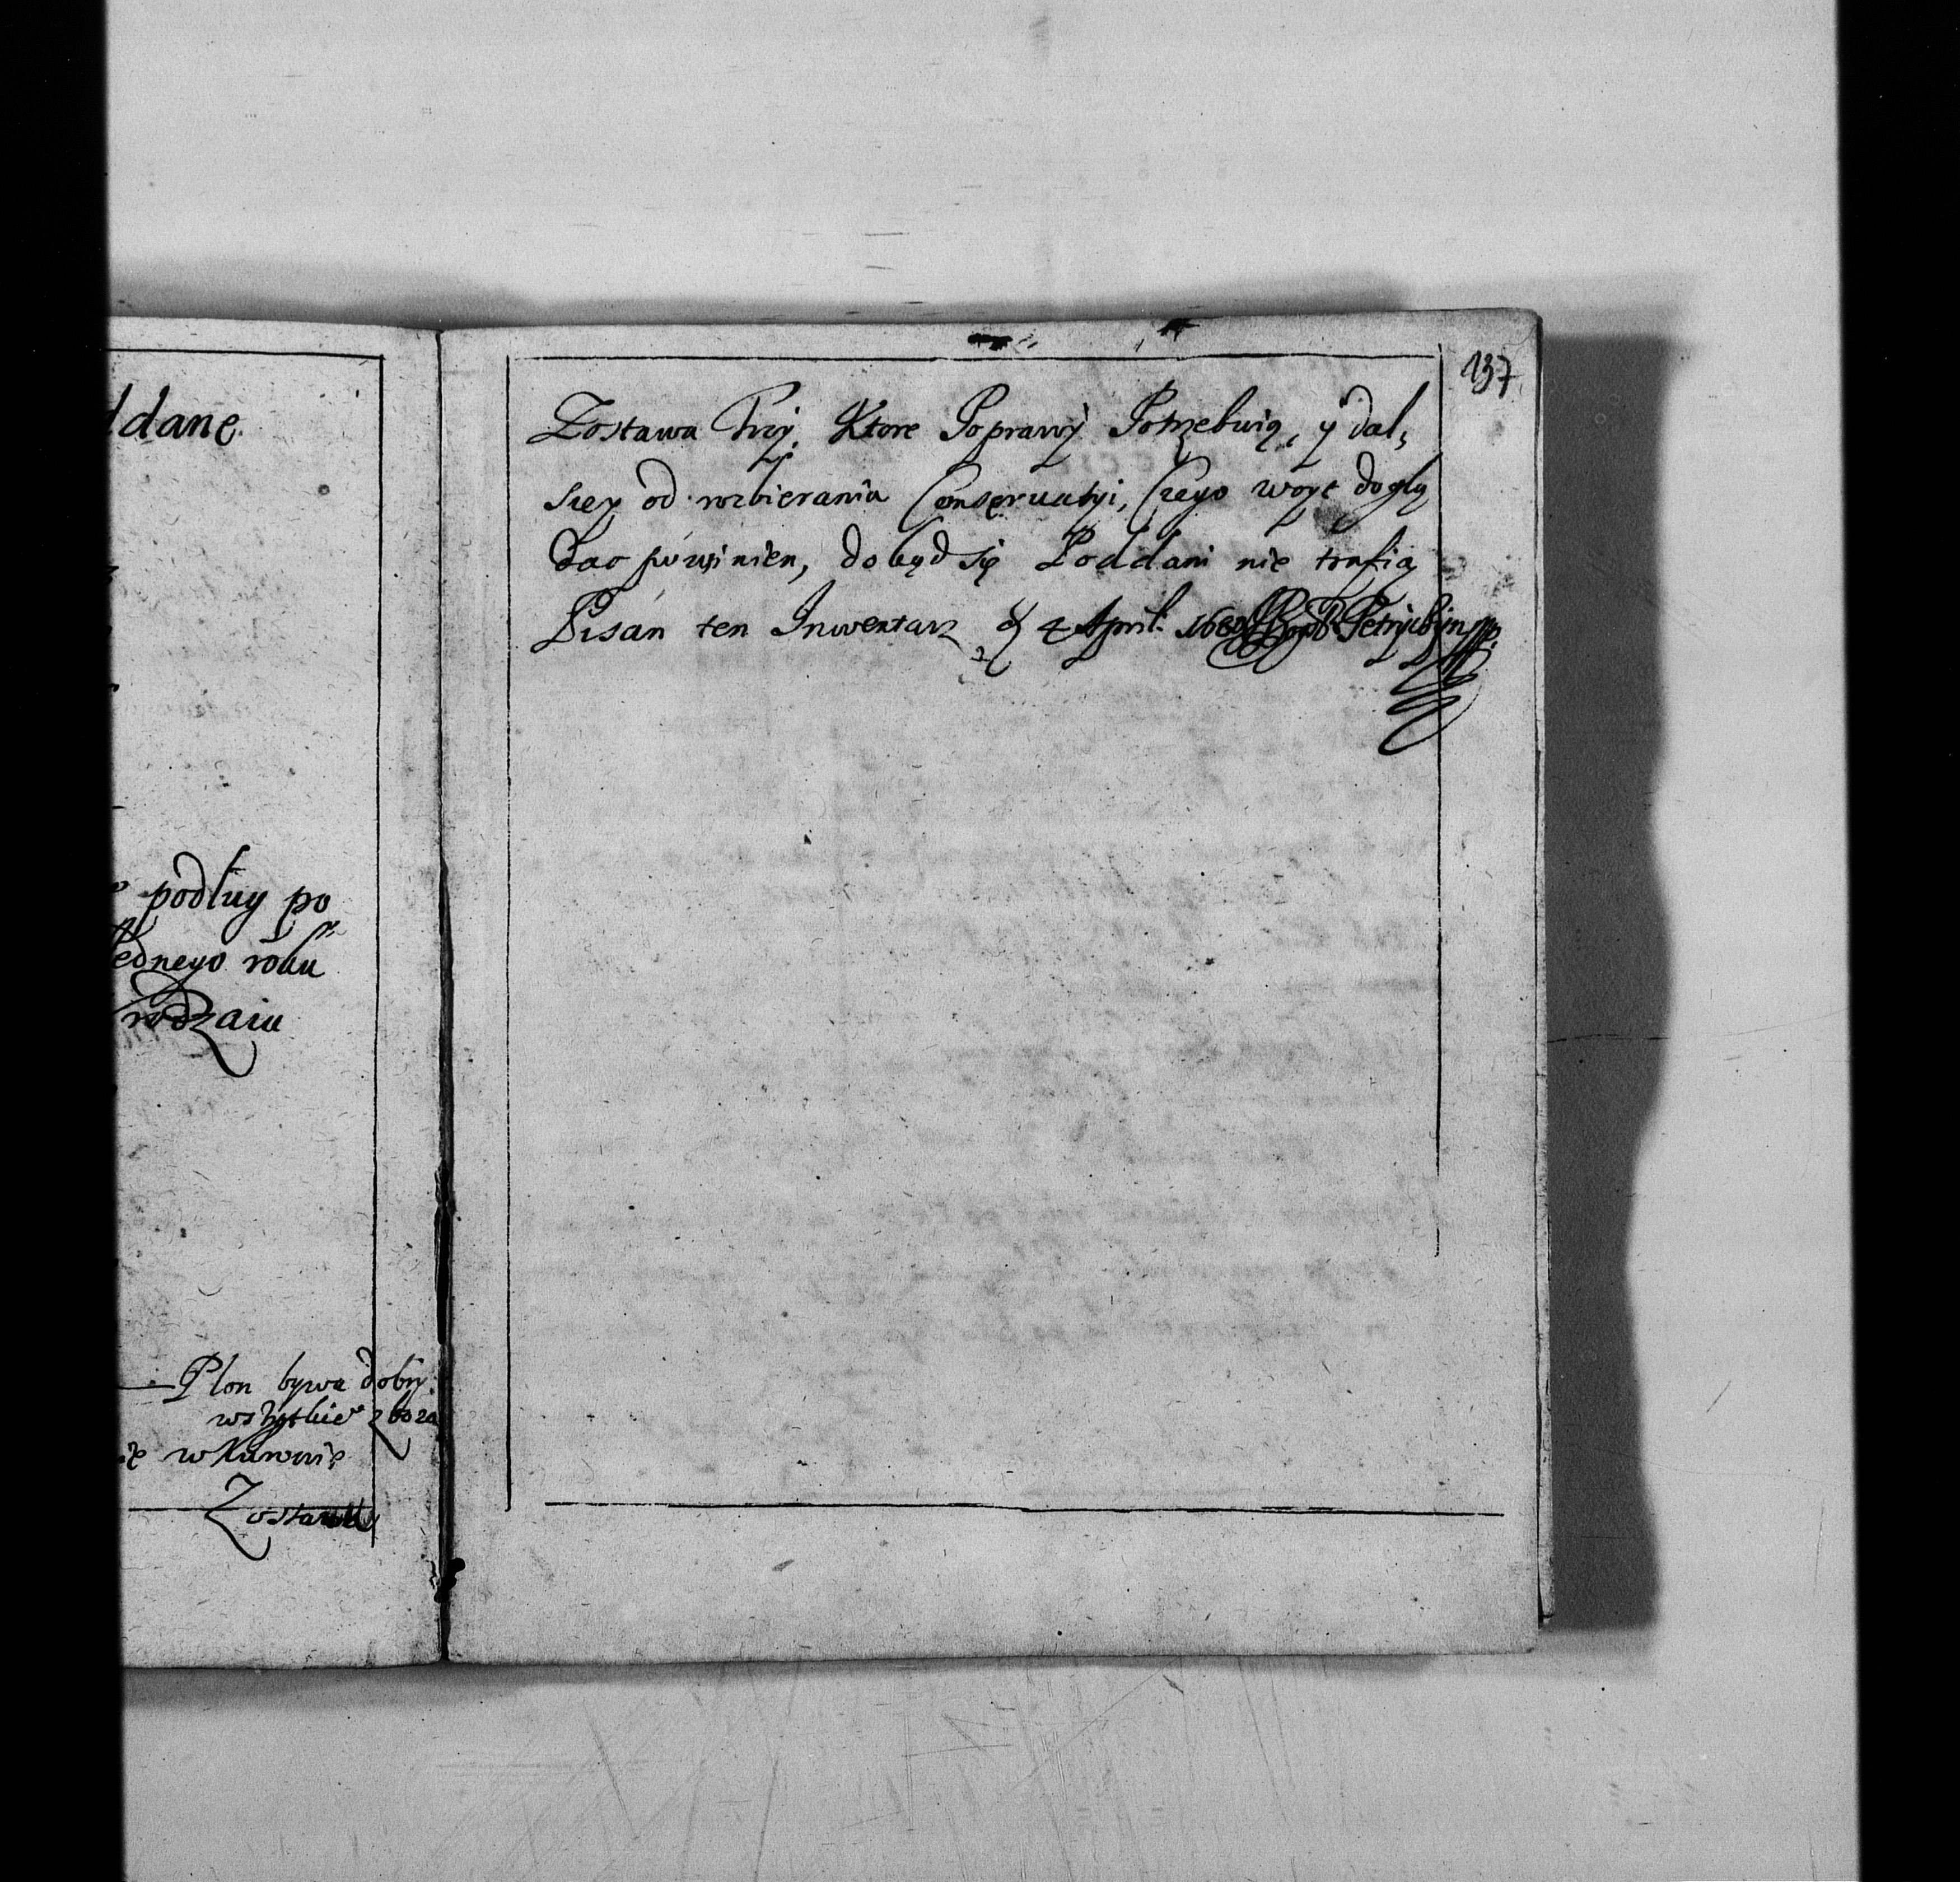 ddane
podług po
ednego roku
rodzaiu
Plon bywa dobry
wszytkie zboza
ie w Kunowie
Zostawa
137
Zostawa Trzy, Ktore Poprawy Potrzebuią, y dal,
szey od rozbierania Conseruatyi, Czego woyt doglą
dac powinien, dokąd się Poddani nie trafią
Pisan ten Inwentarz d 4 April.